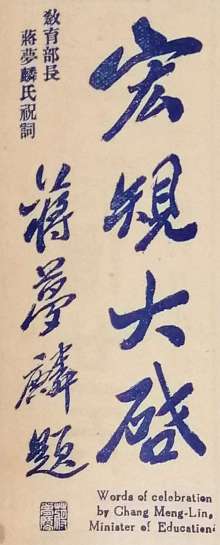 教育部長
蔣夢麟氏祝詞
宏規大啓
蔣夢麟題
Words of celebration
by Chang Meng-Lin,
Minister of Education: